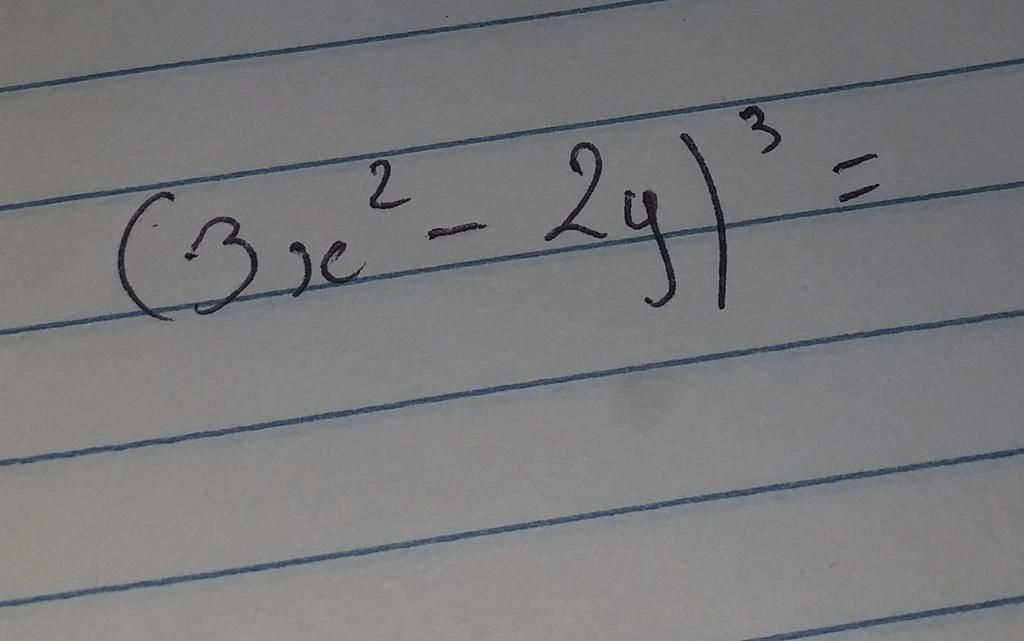 (3x² - 2y)³ =